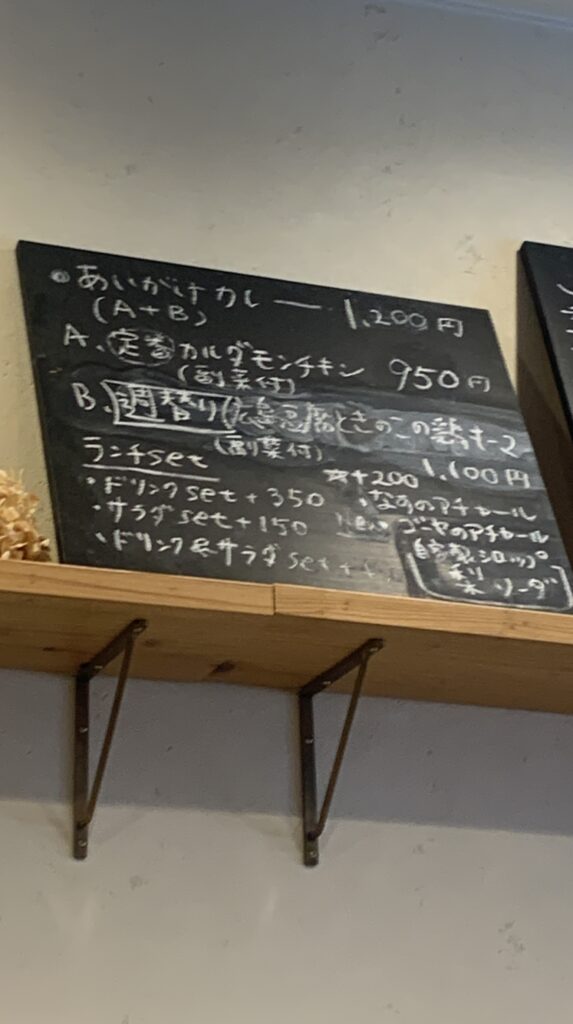 あいがけカレー 1,200円
(A+B)
A、定番カルダモンチキン 950円
(副菜付)
B、週替り 豆腐ときのこの
(副菜付) 1,100円
ランチset ☆+200
・ドリンクset+350 ・なすのアチャール
・サラダset+150 New ゴーヤのアチャール
・ドリンク&サラダset+ 自家製シロップ
梨ソーダ